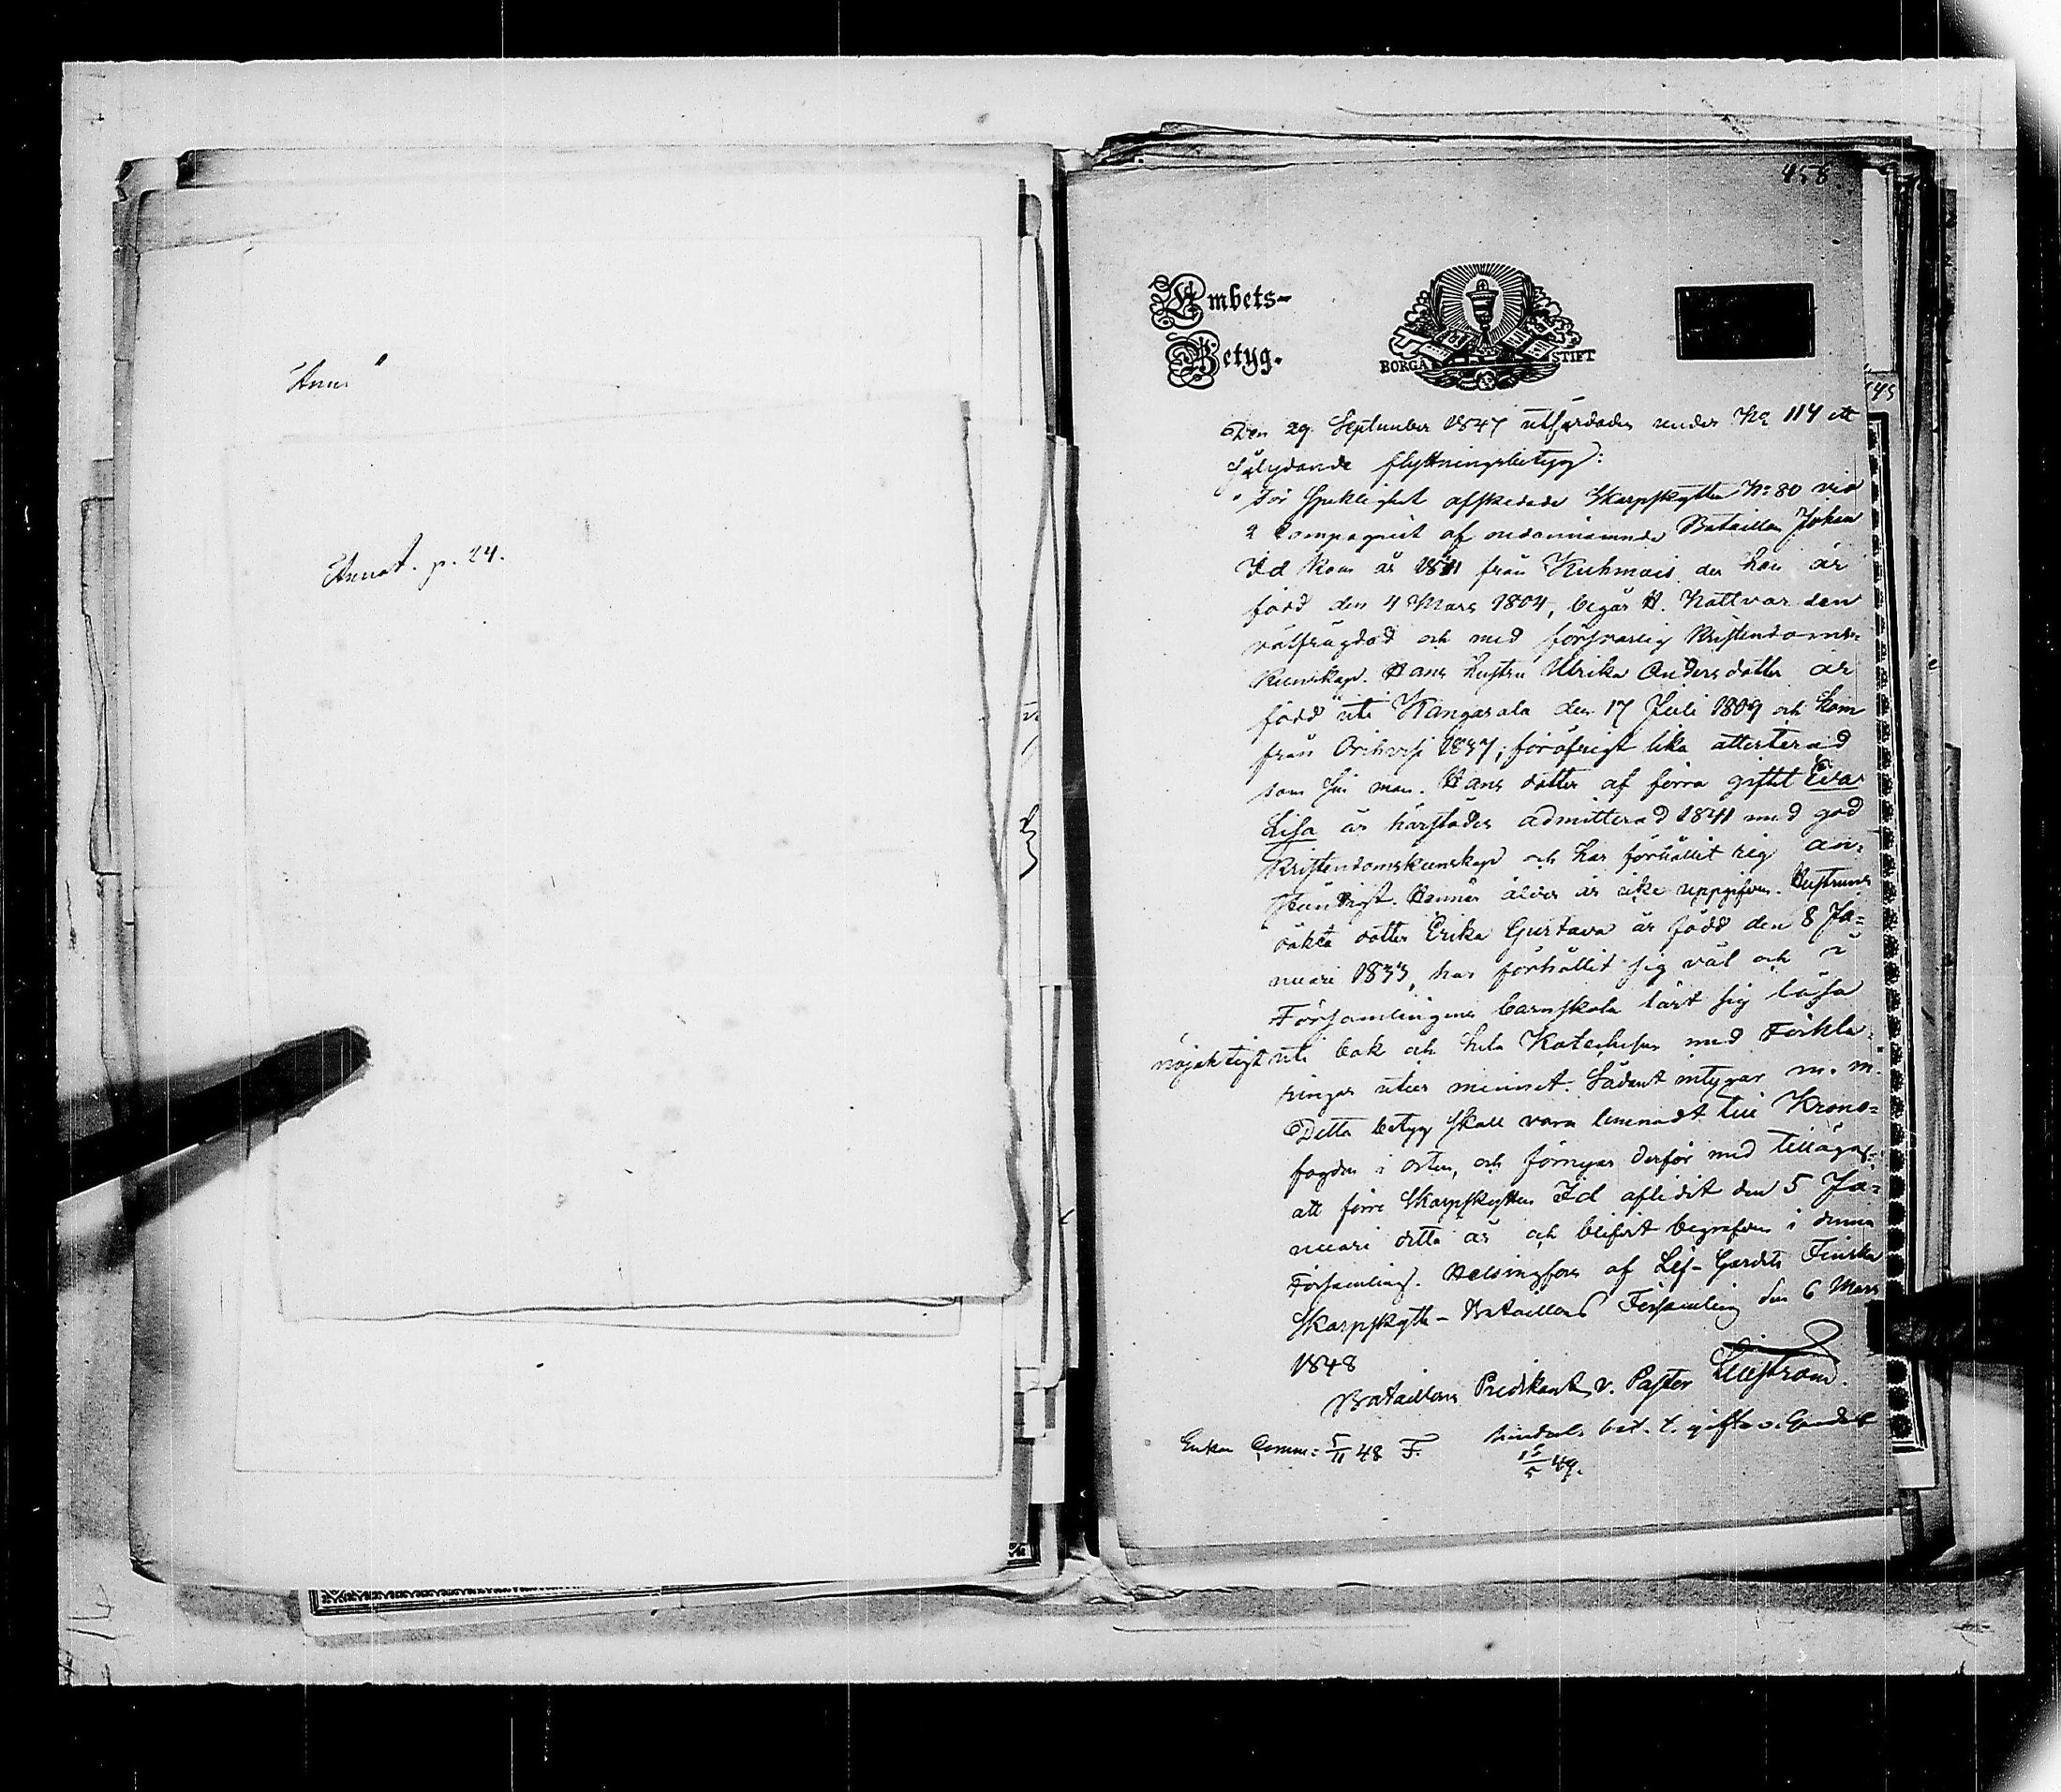 Annot. p. 24.
458.
Embets-
Betyg.
BORGÅ STIFT
Den 29 September 1847 utfärdades under No 114 ett
sålydande flyttningsbetyg:
"För sjuklighet afskedade Skarpskytten No 80 vid
2 Compagniet af ofvannämnde Bataillon Johan
Id kom år 1831 från Kuhmois der han är
född den 4 Mars 1804, begår H. Nattvarden
välfrägdad och med försvarlig Kristendoms-
kunskap. Hans hustru Ulrika Andersdotter är
född uti Kangasala den 17 Juli 1809 och kom
från Orihvesi 1837; föröfrigt lika attesterad
som sin man. Hans dotter af förra giftet Eva
Lisa är härstädes admitterad 1841 med god
Kristendomskunskap och har förhållit sig an-
ständigt. Hennes ålder är icke uppgifven. Hustruns
oäkta dotter Erika Gustava är född den 8 Ja-
nuari 1833, har förhållit sig väl och i
Församlingens barnskola lärt sig läsa
nöjaktigt uti bok och hela Katechesen med Förkla-
ringar utur minnet. Sådant intygar m. m.
Detta betyg skall vara lemnadt till Krono-
fogden i orten, och förnyas derför med tillägg
att förre Skarpskytten Id aflidit den 5 Ja-
nuari detta år och blifvit begrafven i denna
Församling. Helsingfors af Lif-Gardets Finska
Skarpskytte-Bataillons Församling den 6 Mars
1848
Bataillons Predikant, v. Pastor Lilljström.
Enkan Comm: 5/11 48 F. hindersl. bet. t. gifte
15/5 49.